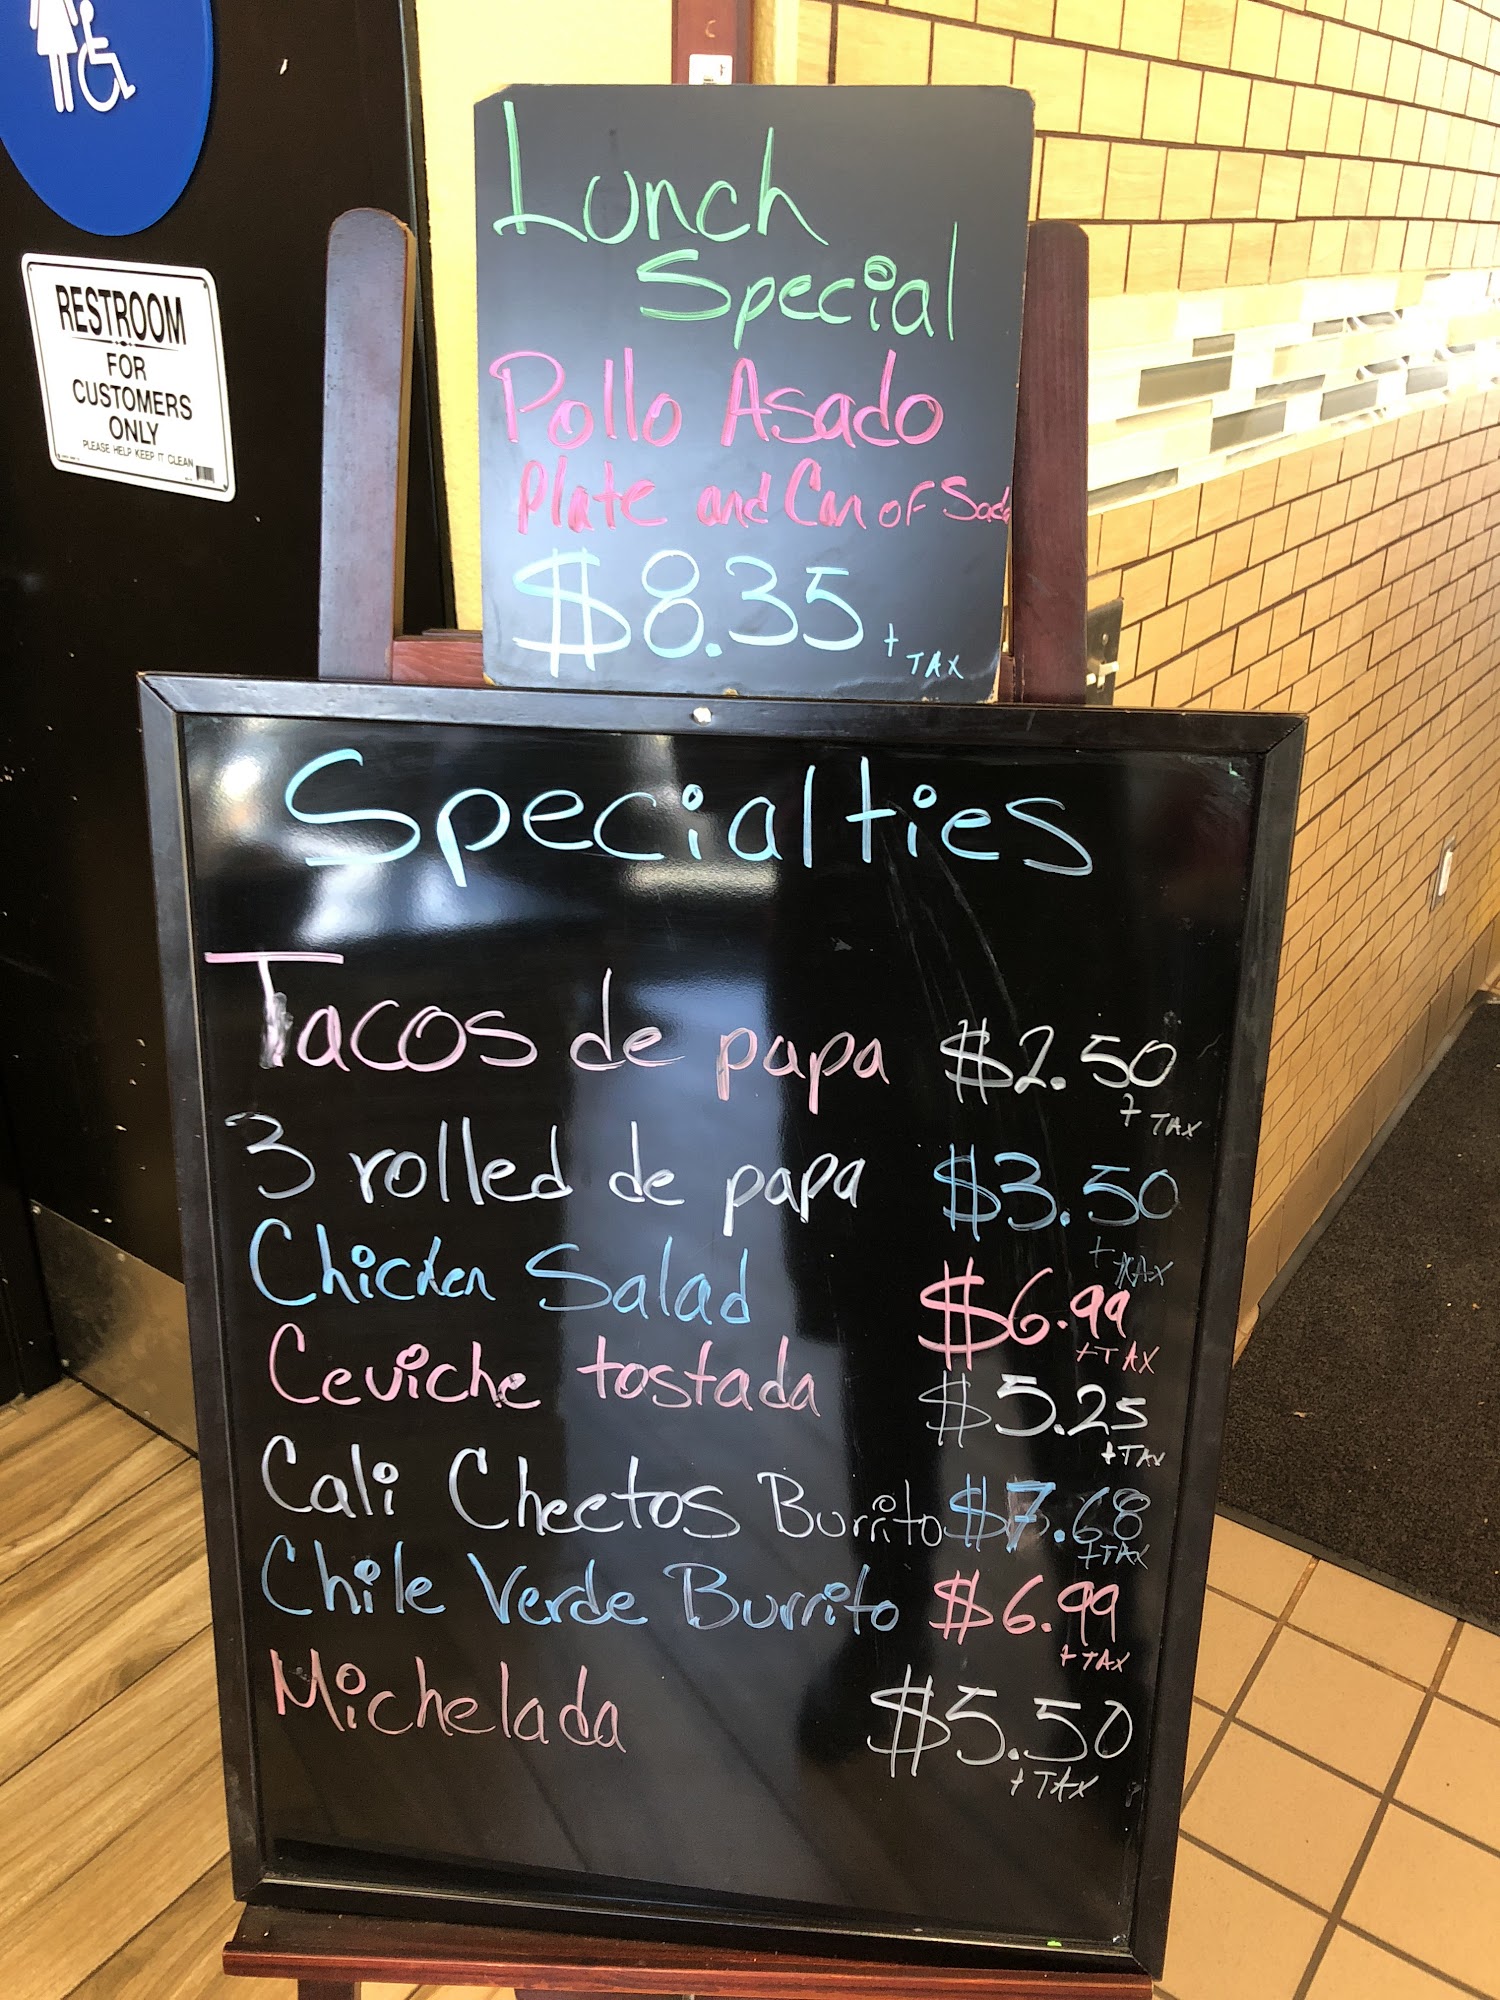 RESTROOM
FOR
CUSTOMERS
ONLY
PLEASE HELP KEEP IT CLEAN
Lunch
Special
Pollo Asado
Plate and Can of Soda
$8.35 + TAX
Specialties
Tacos de papa $2.50
+ TAX
3 rolled de papa $3.50
+ TAX
Chicken Salad $6.99
+ TAX
Ceviche tostada $5.25
+ TAX
Cali Cheetos Burrito $7.68
+ TAX
Chile Verde Burrito $6.99
+ TAX
Michelada $5.50
+ TAX